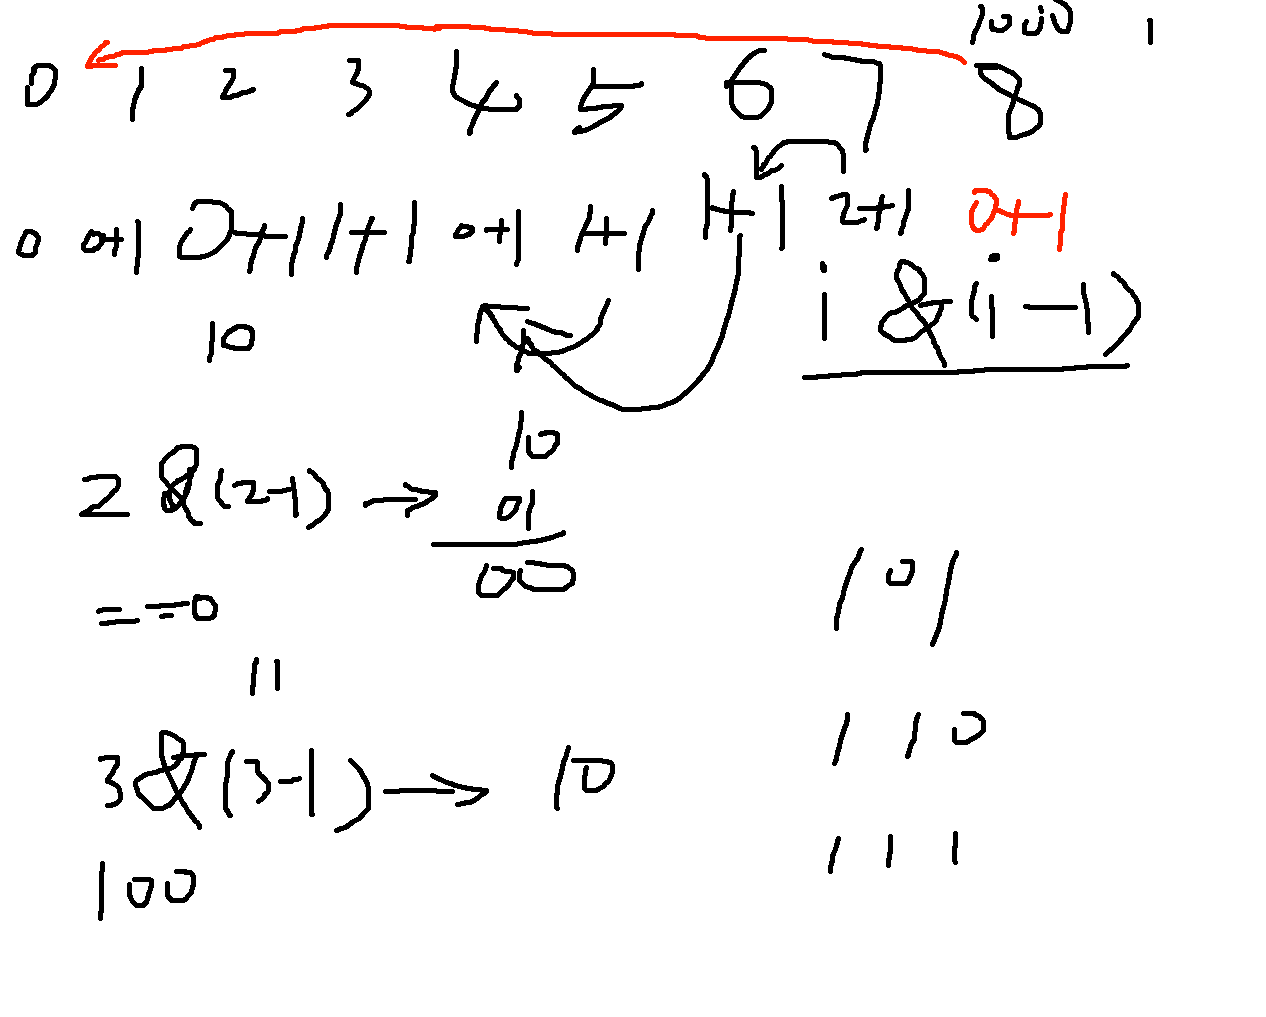 1000 1
0 1 2 3 4 5 6 7 8
0 0+1 0+1 1+1 0+1 1+1 1+1 2+1 0+1
i & (i-1)
10
10
2 & (2-1) → 01
00
= = 0
101
11
110
3 & (3-1) → 10
111
100